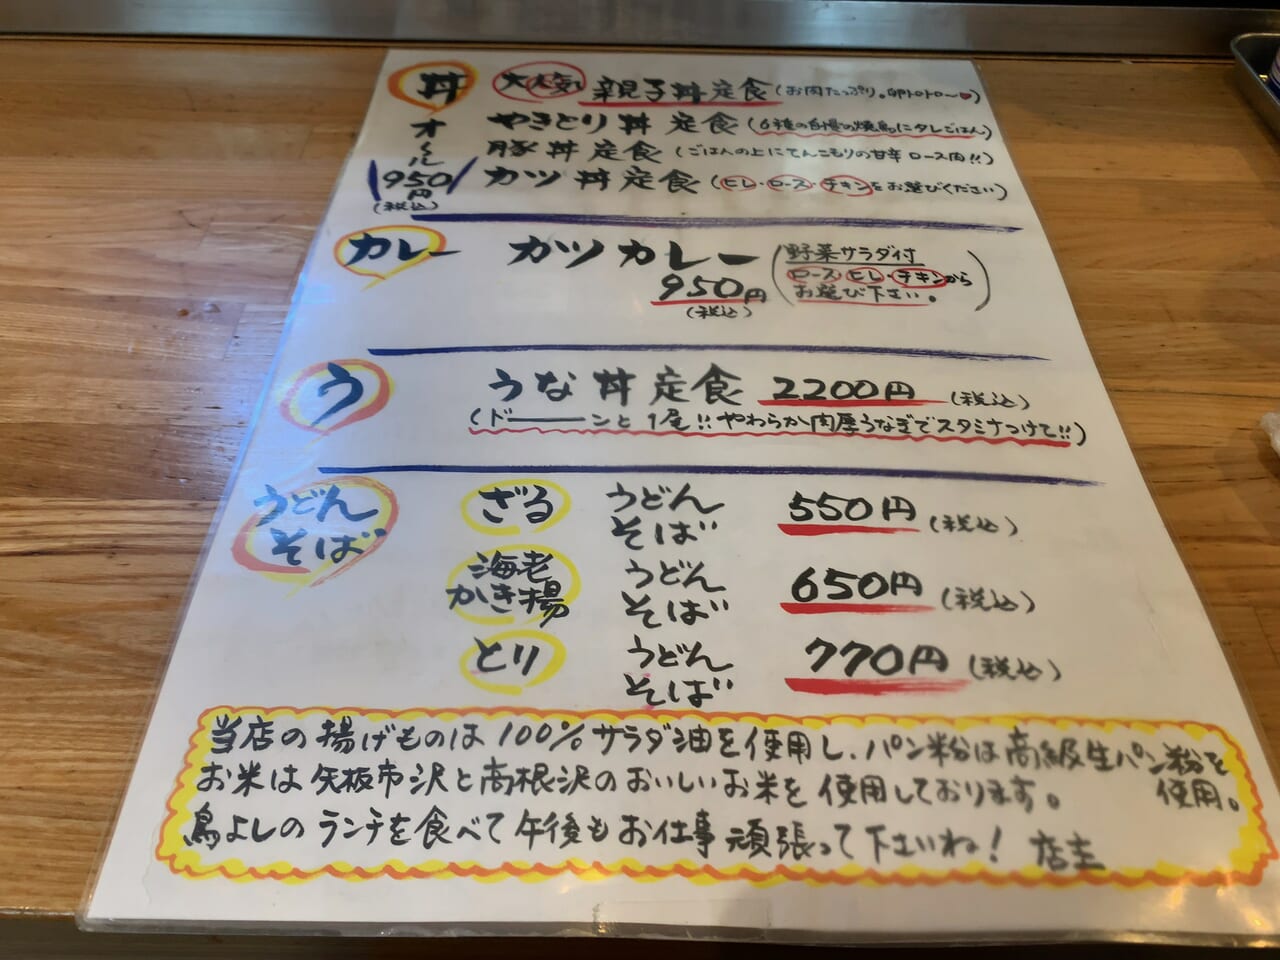 丼
オール
950円
(税込)
大人気 親子丼定食(お肉たっぷり。卵トロトロ〜♥)
やきとり丼定食(6種の自慢の焼鳥にタレごはん)
豚丼定食(ごはんの上にてんこもりの甘辛ロース肉!!)
カツ丼定食(ヒレ・ロース・チキンをお選びください)
カレー
カツカレー
950円
(税込)
(野菜サラダ付
ロース・ヒレ・チキンから
お選び下さい。)
う
うな丼定食 2200円(税込)
(ドーーーンと1尾!!やわらか肉厚うなぎでスタミナつけて!!)
うどん
そば
ざる うどん そば 550円(税込)
海老かき揚 うどん そば 650円(税込)
とり うどん そば 770円(税込)
当店の揚げものは100%サラダ油を使用し、パン粉は高級生パン粉を使用。
お米は矢板市沢と高根沢のおいしいお米を使用しております。
鳥よしのランチを食べて午後もお仕事頑張って下さいね! 店主